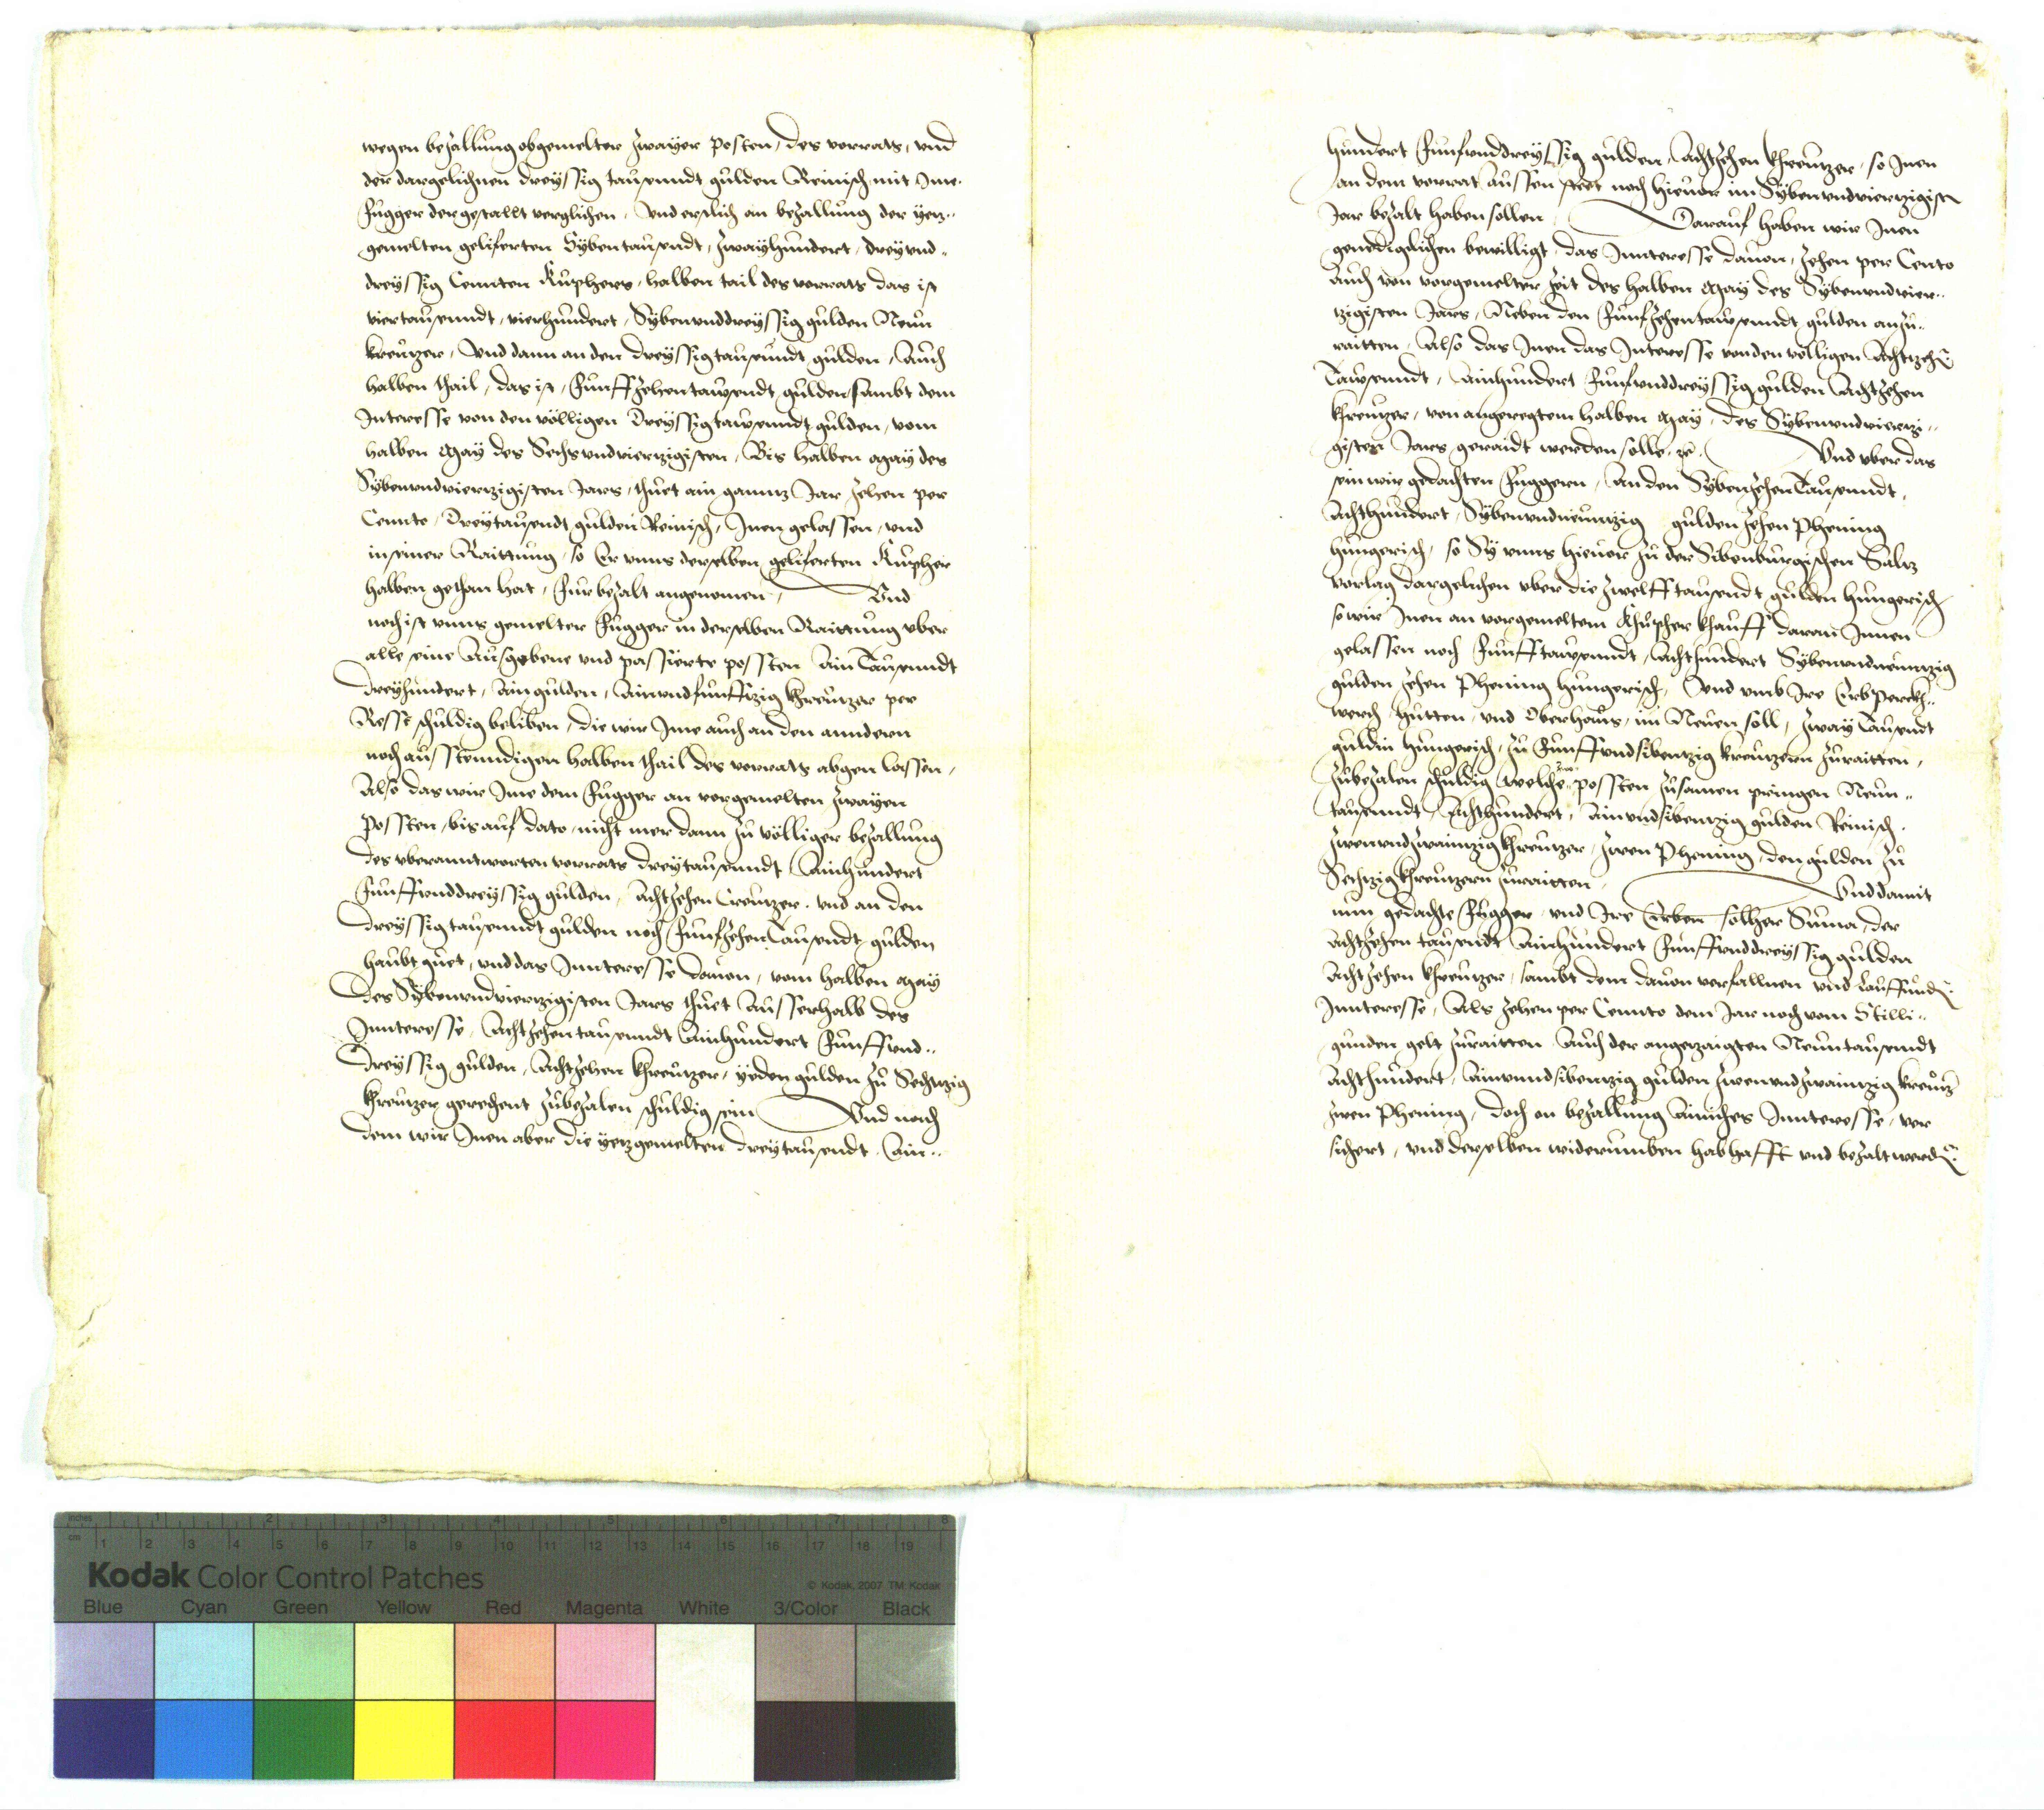 wegen bezallung obgemelter zwayer posten, des vorrats, vnd
der dargelichnen dreyssig tausenndt gulden Reinisch mit Ime
Fugger dergestallt verglichen, Vnd erstlich an bezallung der yetz-
gemelten geliferten Sybentausendt, zwayhundert, dreyvnd-
dreyssig Centen Kuphers, halben tail des vorrats das ist
viertausenndt, vierhundert, Sybenvnddreyssig gulden Neun
kreutzer, Vnd dann an den dreyssigtausendt gulden, Auch
halben thail, das ist, Funffzehentawsendt gulden sambt dem
Interesse von den völligen Dreyssigtawsenndt gulden, vom
halben May des Sechsvndviertzigisten, Bis halben May des
Sybenvndviertzigisten Jars, thuet ain ganntz Jar zehen per
Cennto, Dreytausendt gulden Reinisch, Inen gelassen, vnd
in seiner Raittung, so Er vnns derselben geliferten Kupher
halben gethan hat, Fur bezalt angenomen, Vnd
noch ist vnns gemelter Fugger in derselben Raittung vber
alle seine Ausgebene vnd passierte possten Ain Tausenndt
dreyhundert, Ain gulden, Ainvndfunfftzig Khreutzer per
Resst schuldig beliben, die wir Ime auch an den anndern
noch ausstenndigen halben thail des vorrats abgen lassen,
Also das wir Ime dem Fugger an vorgemelten zwayen
possten, bis auf dato, nicht mer dann zu völliger bezallung
des vberanntworten vorrats dreytausenndt Ainhundert
Funffvnddreyssig gulden, Achtzehen Creutzer. vnd an den
Dreyssigtausenndt gulden noch Funfzehen Tausendt gulden
haubtguet, vnd das Innteresse dauon, vom halben May
des Sybenvndviertzigisten Jars thuet Ausserhalb des
Innteresse, Achtzehentausenndt Ainhundert Funffvnd-
Dreyssig gulden, Achtzehen Khreutzer, yeden gulden zu Sechtzig
Khreutzer gerechent zubezalen schuldig sein Vnd nach
dem wir Inen aber die yetzgemelten dreytausendt. Ain-
hundert Funfvnddreyssig gulden, Achtzehen khreutzer, so Inen
an dem vorrat aussen steet noch hieuor im Sybenvndviertzigisten
Jar bezalt haben sollen, Darauf haben wir Inen
genedigclichen bewilligt, das Innteresse dauon, zehen per Cento
Auch von vorgemelter zeit des halben May des Sybenvndvier-
tzigisten Jars, Neben den Funfzehentawsenndt gulden anzu-
raitten, Also das Inen das Interesse von den völligen Achtzehen
Tawsenndt, Ainhundert Funfvnddreyssig gulden Achtzehen
kreutzer, von angeregtem halben May, des Sybenvndviertzi-
gisten Jars geraidt werden solle. Vnd vber das
sein wir gedachten Fuggern, An den Sybenzehen Tausenndt,
Achthundert, Sybenvndneuntzig gulden zehen Phening
hungerisch, so Sy vnns hieuor zu der Sibenburgischen Saltz
verlag dargelichen vber die zwelfftausendt gulden hungerisch
so wir Inen an vorgemeltem Khupher khauff daran Innen
gelassen noch Funfftawsenndt, Achthundert Sybenvndneuntzig
gulden zehen Phening hungerisch, Vnd vmb Ire Erb Perckh-
werch, hutten, vnd Oberhaus, im Neuen soll, zway Tausendt
guldin hungerisch, zu Funffvndsibentzig kreutzern zuraitten,
zubezalen schuldig welche possten zusamen pringen Neun-
tausenndt Achthundert, Ainvndsibentzig gulden Reinisch.
zwenvndzwaintzig khreutzer, zwen Phening, den gulden zu
Sechtzig khreutzern zuraitten, Vnd damit
nun gedachte Fugger vnd Ire Erben solher Suma, der
Achtzehen tausendt Ainhundert Funffvnddreyssig gulden
Achtzehen khreutzer, sambt dem dauon verfallnen vnd Lauffunden
Innteresse, Als zehen per Cennto dem Jar nach vom
gunden gelt zuraitten Auch der angezaigten Neuntausenndt
Achthundert, Ainvnndsibentzig gulden zwenvndzwaintzig kreutzer
zwen Phening, doch on bezallung Ainiches Innteresse, ver
sichert, vnd derselben widerumben habhafft vnd bezalt werden
Kodak Color Control Patches
© Kodak, 2007 TM: Kodak
inches 1 2 3 4 5 6 7 8
cm 1 2 3 4 5 6 7 8 9 10 11 12 13 14 15 16 17 18 19
Blue Cyan Green Yellow Red Magenta White 3/Color Black